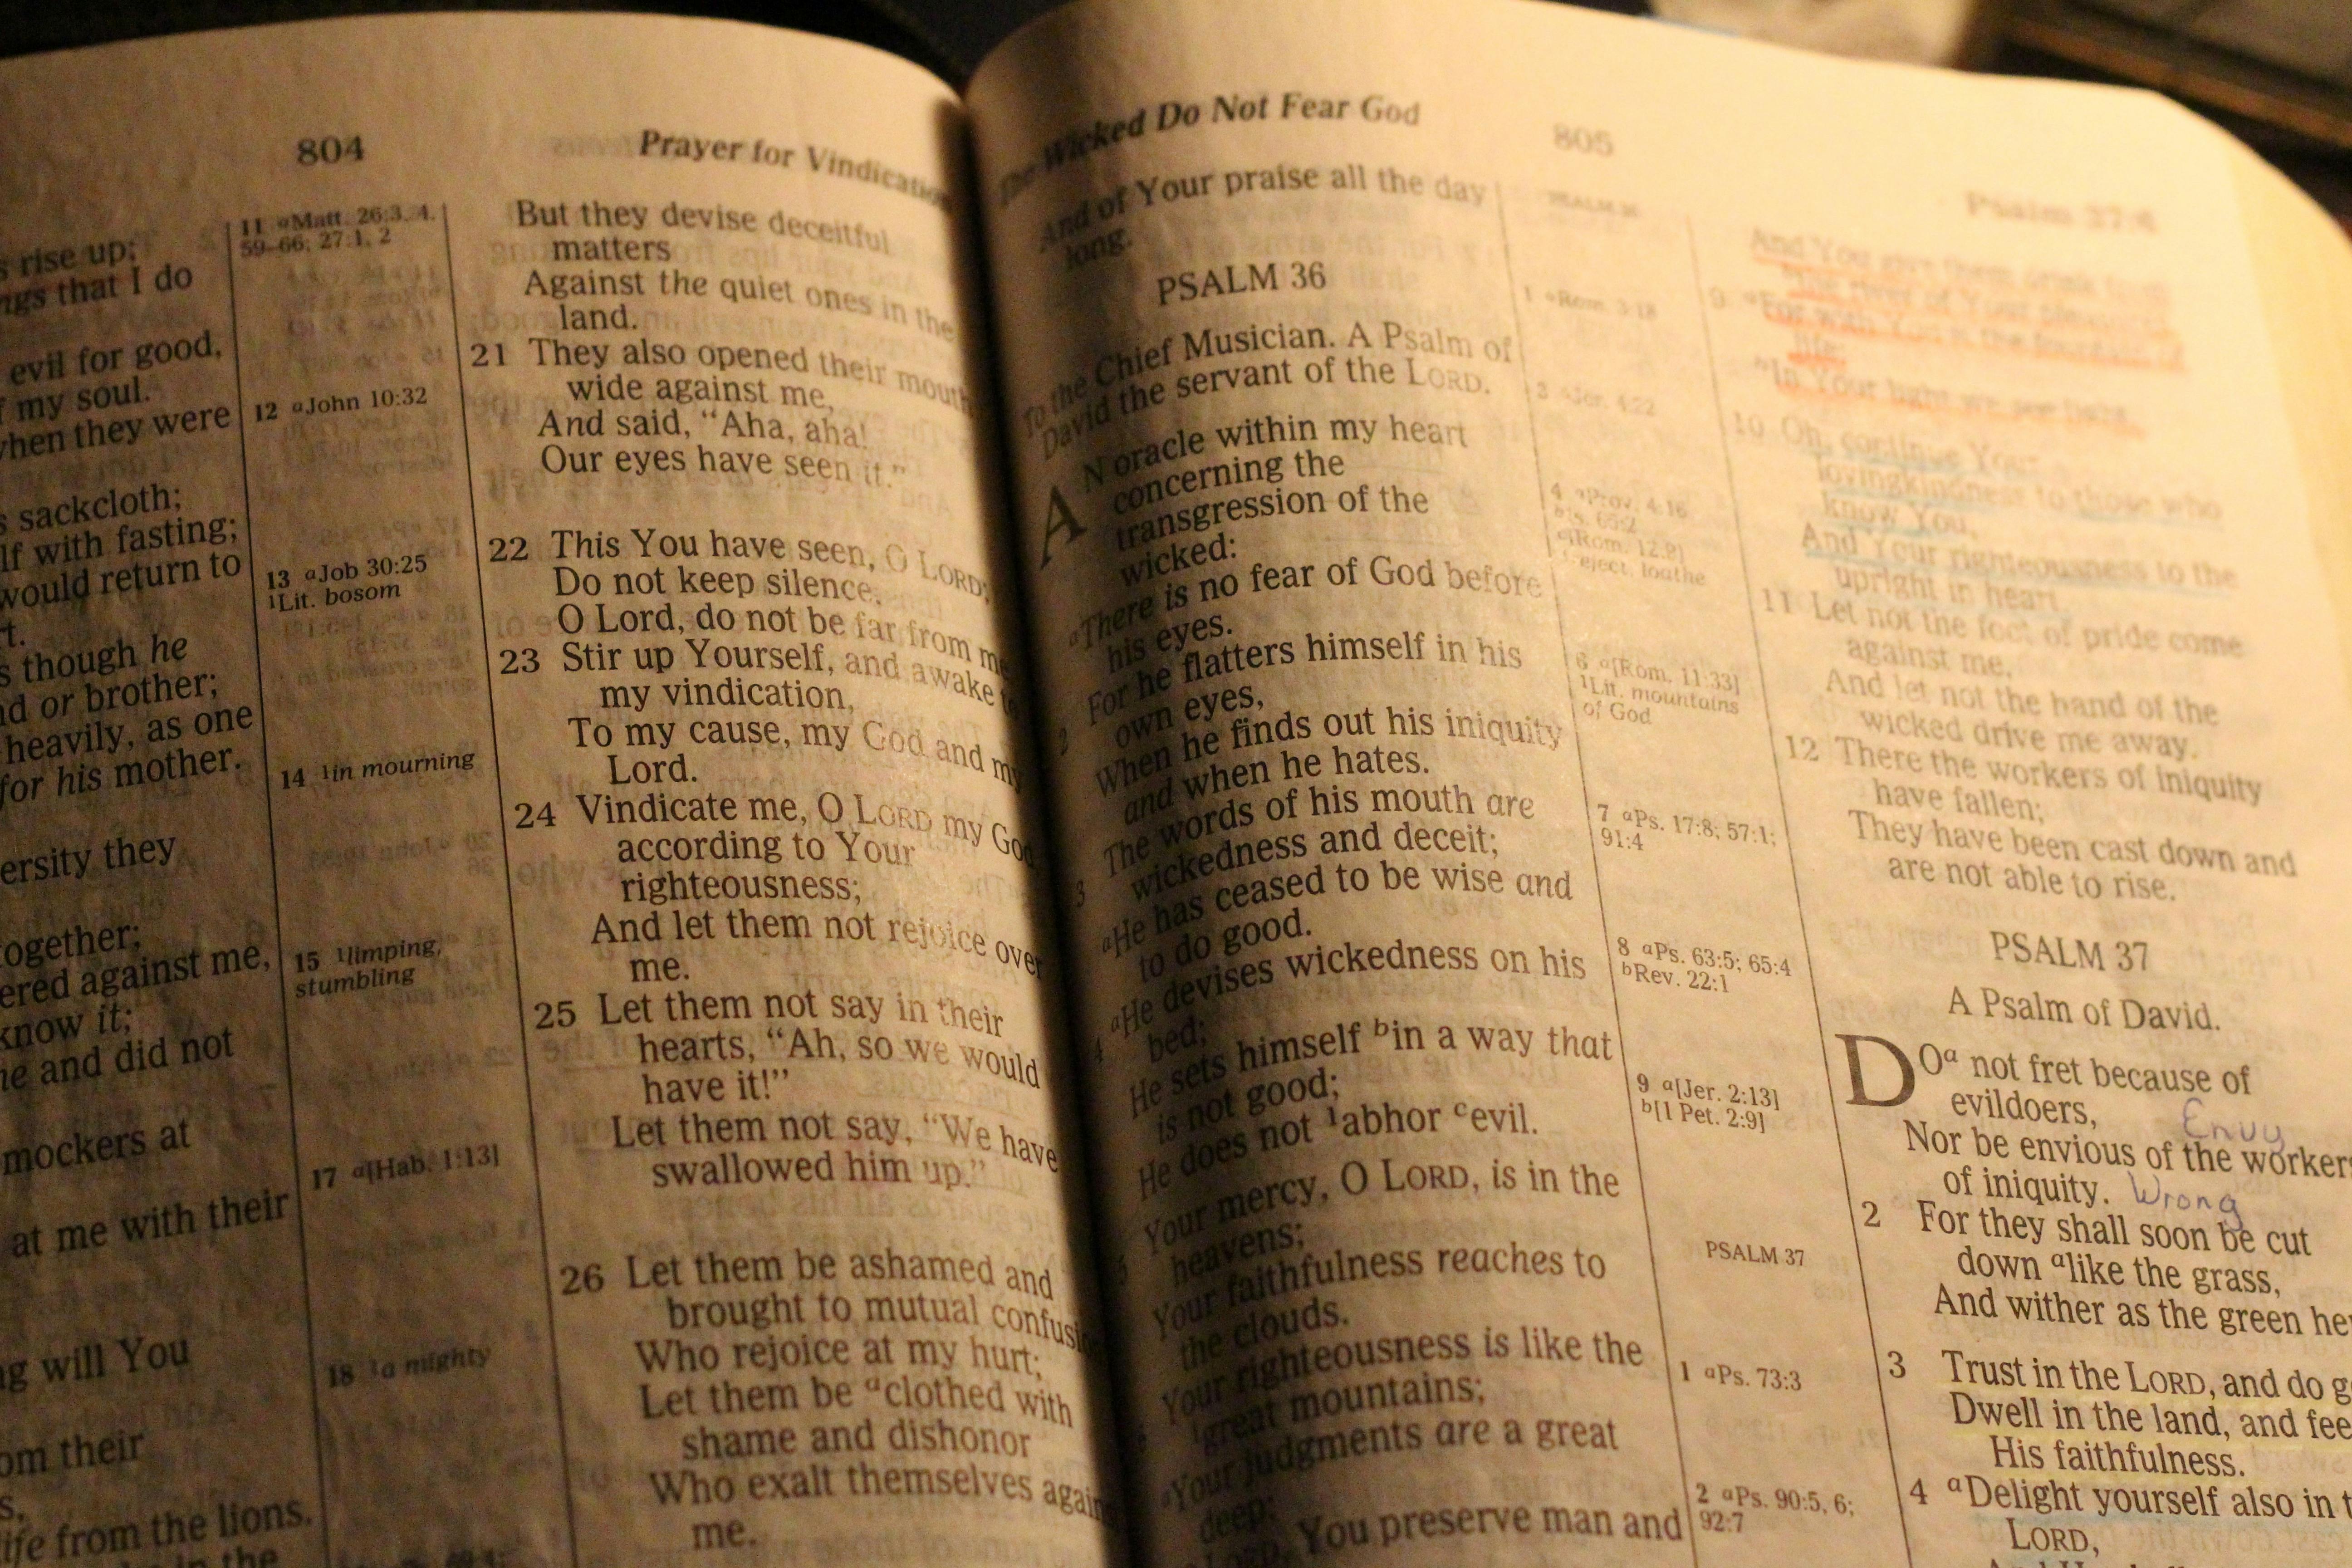 804
Prayer for Vindication
s rise up;
ngs that I do
evil for good,
my soul.
when they were
s sackcloth;
lf with fasting;
would return to
t.
s though he
nd or brother;
heavily, as one
for his mother.
ersity they
ogether;
ered against me,
know it;
ne and did not
mockers at
at me with their
ng will You
om their
s,
life from the lions.
in the
11 aMatt. 26:3, 4,
59–66; 27:1, 2
12 aJohn 10:32
13 aJob 30:25
1Lit. bosom
14 1in mourning
15 1limping,
stumbling
17 a[Hab. 1:13]
18 1a mighty
But they devise deceitful
matters
Against the quiet ones in the
land.
21 They also opened their mouth
wide against me,
And said, “Aha, aha!
Our eyes have seen it.”
22 This You have seen, O LORD;
Do not keep silence.
O Lord, do not be far from me
23 Stir up Yourself, and awake to
my vindication,
To my cause, my God and my
Lord.
24 Vindicate me, O LORD my God
according to Your
righteousness;
And let them not rejoice over
me.
25 Let them not say in their
hearts, “Ah, so we would
have it!”
Let them not say, “We have
swallowed him up.”
26 Let them be ashamed and
brought to mutual confusi
Who rejoice at my hurt;
Let them be aclothed with
shame and dishonor
Who exalt themselves again
me.
The Wicked Do Not Fear God
805
Psalm 37:4
And of Your praise all the day
long.
PSALM 36
To the Chief Musician. A Psalm of
David the servant of the LORD.
AN oracle within my heart
concerning the
transgression of the
wicked:
aThere is no fear of God before
his eyes.
2 For he flatters himself in his
own eyes,
When he finds out his iniquity
and when he hates.
3 The words of his mouth are
wickedness and deceit;
aHe has ceased to be wise and
to do good.
4 aHe devises wickedness on his
bed;
He sets himself bin a way that
is not good;
He does not 1abhor cevil.
5 Your mercy, O LORD, is in the
heavens;
Your faithfulness reaches to
the clouds.
6 Your righteousness is like the
1great mountains;
aYour judgments are a great
deep;
O LORD, You preserve man and
PSALM 36
1 aRom. 3:18
3 aJer. 4:22
4 aProv. 4:16
bIs. 65:2
c[Rom. 12:9]
1reject, loathe
6 a[Rom. 11:33]
1Lit. mountains
of God
7 aPs. 17:8; 57:1;
91:4
8 aPs. 63:5; 65:4
bRev. 22:1
9 a[Jer. 2:13]
b[1 Pet. 2:9]
PSALM 37
1 aPs. 73:3
2 aPs. 90:5, 6;
92:7
And You give them drink from
the river of Your pleasures.
9 aFor with You is the fountain of
life;
bIn Your light we see light.
10 Oh, continue Your
lovingkindness to those who
know You,
And Your righteousness to the
upright in heart.
11 Let not the foot of pride come
against me,
And let not the hand of the
wicked drive me away.
12 There the workers of iniquity
have fallen;
They have been cast down and
are not able to rise.
PSALM 37
A Psalm of David.
DOa not fret because of
evildoers,
Envy
Nor be envious of the workers
of iniquity. Wrong
2 For they shall soon be cut
down alike the grass,
And wither as the green he
3 Trust in the LORD, and do g
Dwell in the land, and fee
His faithfulness.
4 aDelight yourself also in t
LORD,